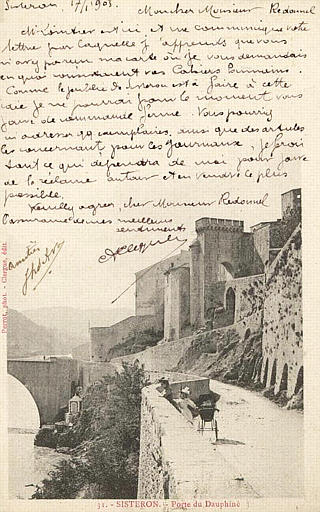 Sisteron, 17/1 903.
Mon cher Monsieur Redonnel
M. Lombier est ici, et me communique votre
lettre par laquelle j'apprends que vous
n'avez reçu ma carte où je vous demandais
en quoi consistaient vos Cahiers
Comme la public de Sisteron est à faire à cette
idée je ne pourrai pour le moment vous
faire de commande ferme. Vous pourriez
m'adresser 99 exemplaires, ainsi que des articles
les concernant pour les journaux. Je ferai
tout ce qui dépendra de moi pour faire
de la réclame autour et en vendre le plus
possible.
Veuillez agréer, cher Monsieur Redonnel
l'assurance de mes meilleurs
sentiments
amitiés
Perrot, phot. - Clergue, édit.
31. - SISTERON. - Porte du Dauphiné